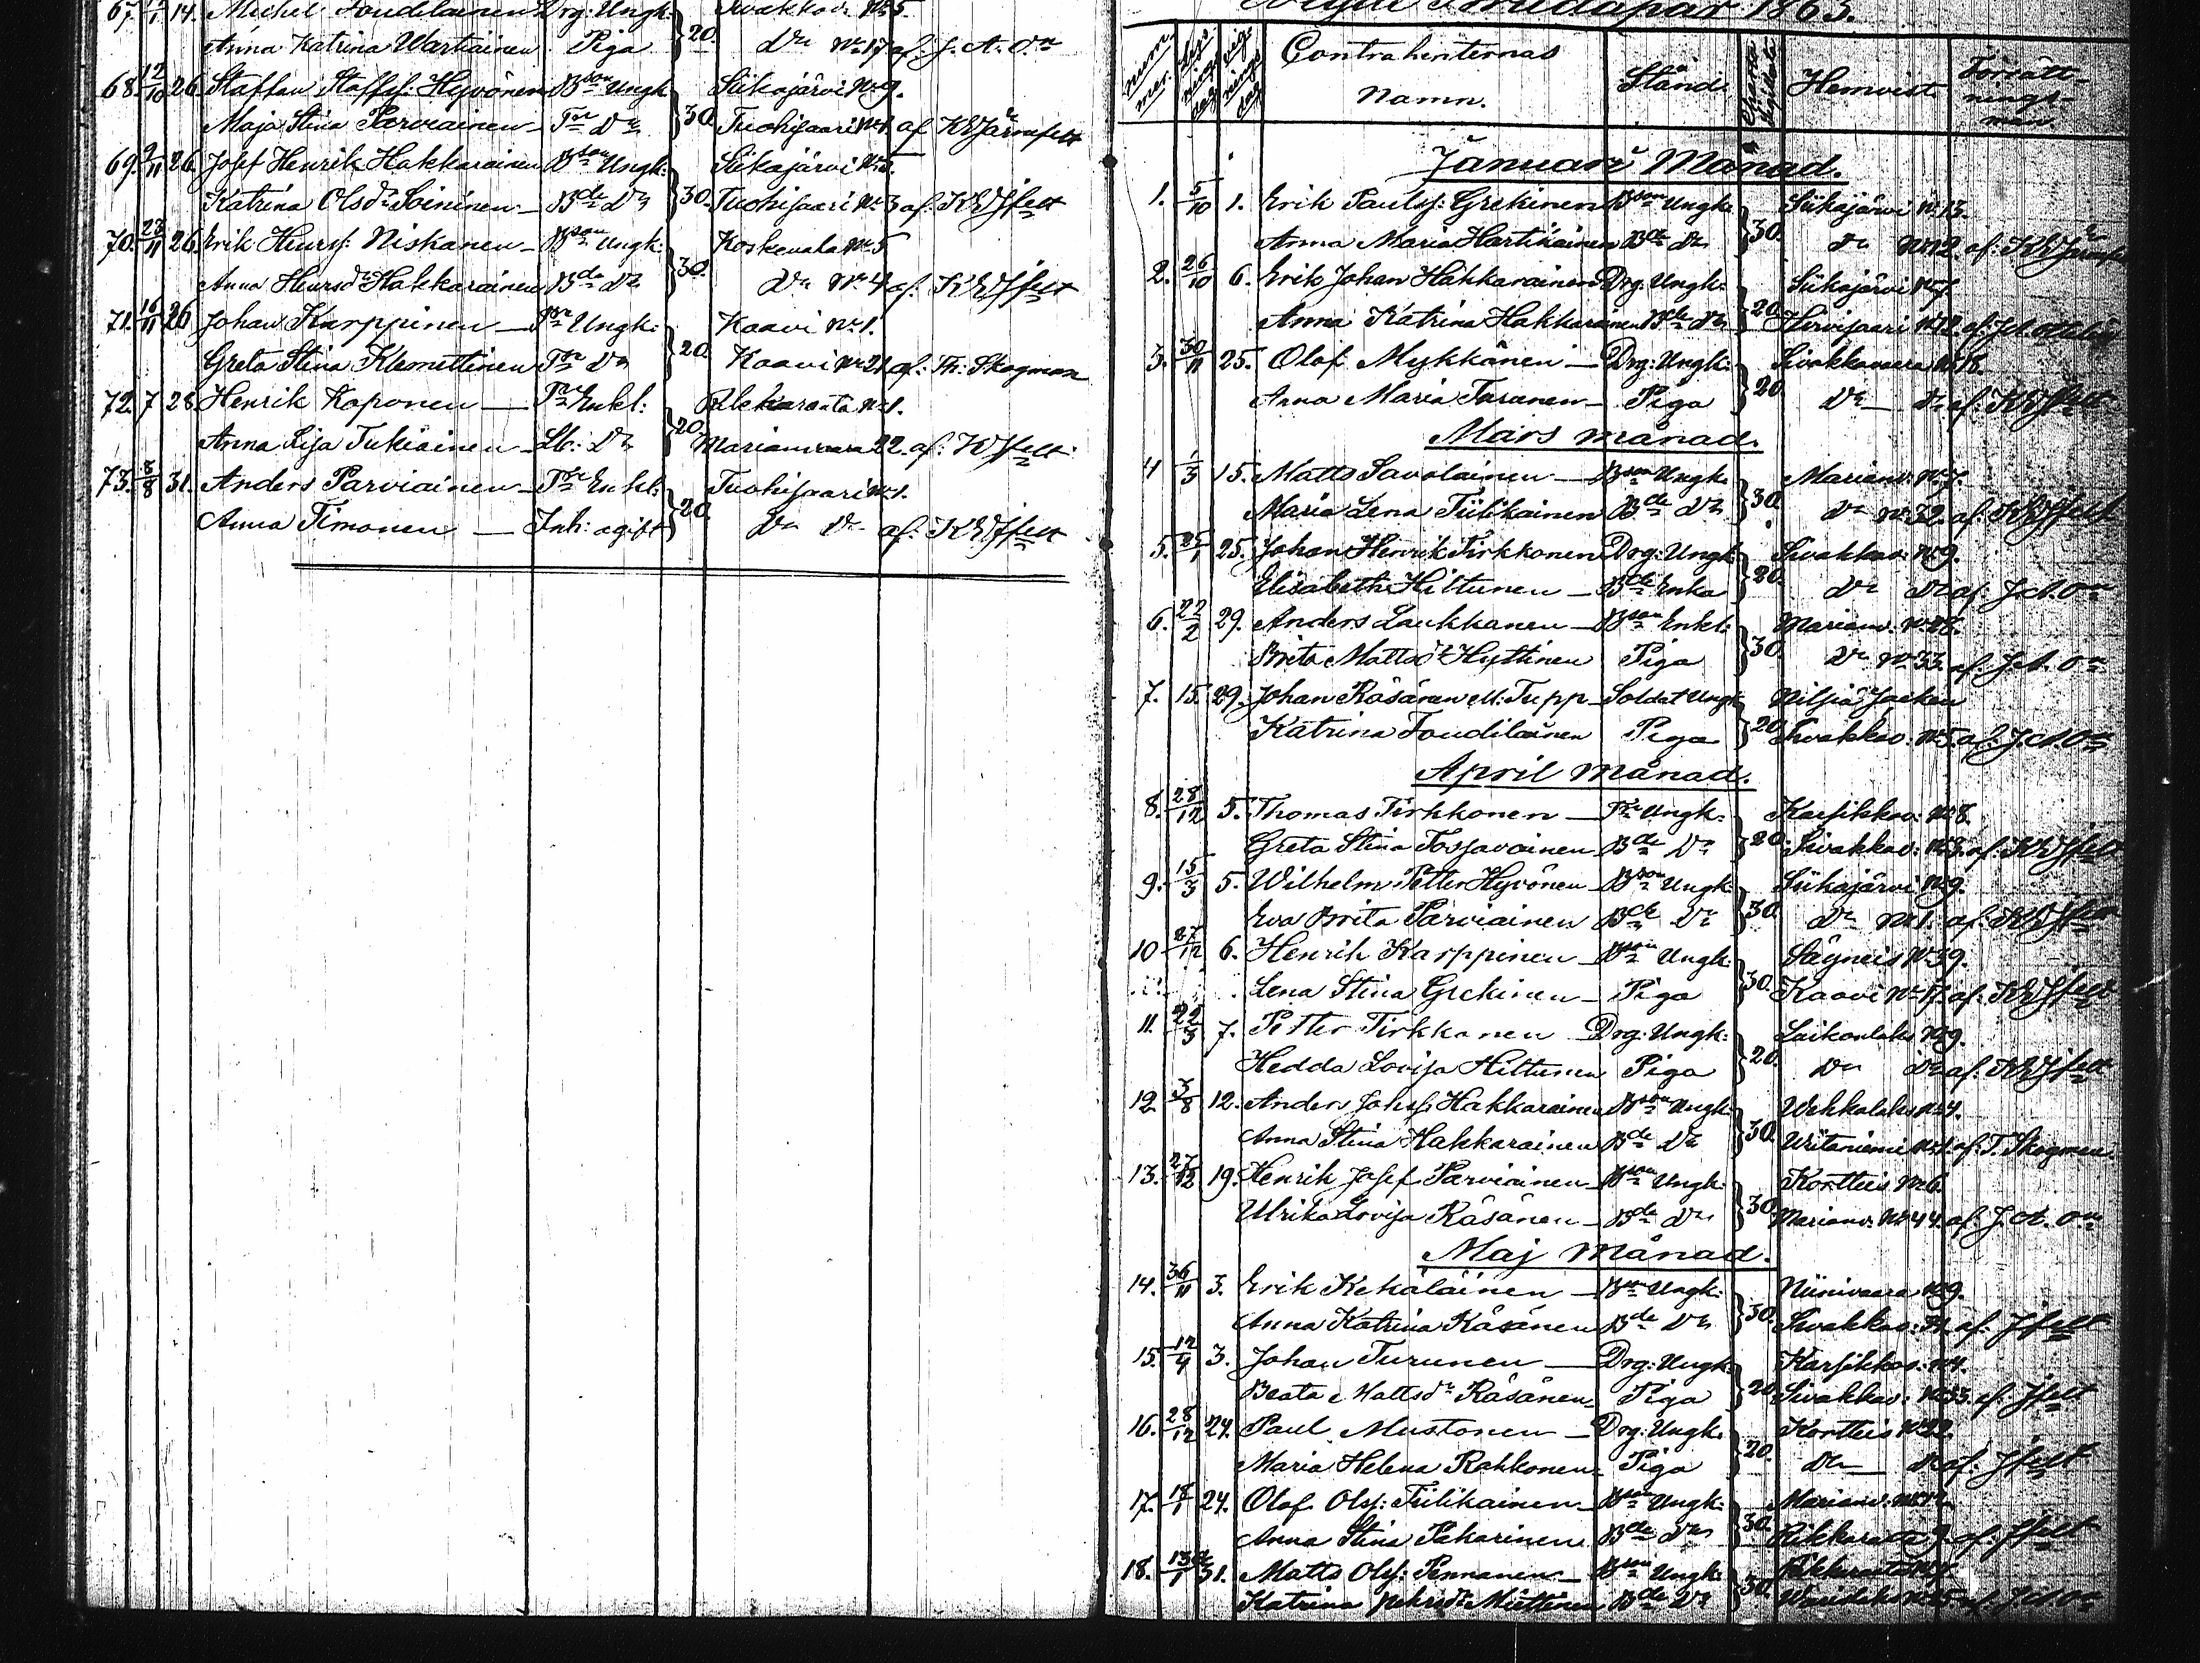 67. 14. Michel Toudilainen Drg: Ungk: Sivakkav. No 5.
Anna Katrina Wartiainen Piga 20. Do No 17 af. J. A. On
68. 12/10 26. Staffan Staffss: Hyvönen Bson Ungk Siikajärvi No 9.
Maja Stina Parviainen Trn Do 30. Tuohisaari No 1. af KEJärnefelt
69. 9/11 26. Josef Henrik Hakkarainen Bson Ungk: Siikajärvi No 5.
Katrina Olsdr Soininen Bde Do 30. Tuohisaari No 3 af: KEJfelt
70. 23/11 26. Erik Henrss: Niskanen Bson Ungk: Koskenala No 5
Anna Henrsdr Hakkarainen Bde Do 30. Do No 4 af. KEJfelt
71. 16/11 26 Johan Karppinen Trn Ungk: Kaavi No 1.
Greta Stina Klemettinen Trn Do 20. Kaavi No 21 af: Th: Skogman
72. 7 28 Henrik Koponen Trn Enkl: No 1.
Anna Lisa Tukiainen Lb: Do 20. Marianvaara 22. af: KEJfelt
73. 8/8 31. Anders Parviainen Trn Enkl: Tuohisaari No 1.
Anna Timonen Inh: ogift 20. Do Do af: KEJfelt
1865.
Num mer. Lysnings dag Vigningsdag Contrahenternas Namn. Stånd. Charta Sigillata Hemvist Författnings-man.
Januari Månad.
1. 5/10 1. Erik Paulss: Grekinen Bson Ungk: Siikajärvi No 13.
Anna Maria Hartikainen Bde Do 30. Do No 12. af: KEJärnefelt
2. 26/10 6. Erik Johan Hakkarainen Drg: Ungk: Siikajärvi No 7.
Anna Katrina Hakkarainen Bde Do 20. Hirvisaari No 12 af: J.A.
3. 30/11 25. Olof Mykkänen Drg: Ungk: Sivakkavaara No 18.
Anna Maria Turunen Piga 20 Do Do af: KEJfelt
Mars månad.
4 1/3 15. Matts Savolainen Bson Ungk: Marianv. No 7.
Maria Lena Tiilikainen Bde Do 30. Do No 32. af: KEJfelt
5. 25/1 25. Johan Henrik Tirkkonen Drg: Ungk: Sivakkav: No 9.
Elisabeth Hiltunen Bde Enka 20. Do Do af: J.A.On
6. 22/2 29. Anders Laukkanen Bson Enkl: Marianv. No 28.
Brita Mattsdr Hyttinen Piga 30. Do No 33. af: J.A. On
7. 15. 29. Johan Räsänen M. Trupp Soldat Ungk Nilsiä Socken
Katrina Toudilainen Piga 20 Sivakkav: No 5. af. J.A.On
April månad.
8. 28/12 5. Thomas Tirkkonen Trn Ungk: Karsikkov: No 8.
Greta Stina Tossavainen Bde Do 20. Sivakkav: No 3. af: KEJfelt
9. 15/3 5. Wilhelm Petter Hyvönen Bson Ungk: Siikajärvi No 9.
Eva Brita Parviainen Bde Do 30. Do No 1. af: KEJfelt
10 27/12 6. Henrik Karppinen Bson Ungk: Säyneis No 39.
Lena Stina Grekinen Piga 30. Kaavi No 17. af: KEJfelt
11. 22/3 7. Petter Tirkkonen Drg: Ungk: Luikonlaks No 9.
Hedda Lovisa Hiltunen Piga 20. Do Do af: KEJfelt
12. 3/8 12. Anders Johss: Hakkarainen Bson Ungk: Wehkalaks No 4.
Anna Stina Hakkarainen Bde Do 30. Niitaniemi No 1. af: T. Skogman
13. 27/12 19. Henrik Josef Parviainen Bson Ungk: Kortteis No 6.
Ulrika Lovisa Räsänen Bde Do 30. Marianv. No 44. af: J.A. On
Maj månad.
14. 3. Erik Kekäläinen Bson Ungk: Niinivaara No 9.
Anna Katrina Räsänen Bde Do 30. Sivakkav: af: Jfelt
15. 12/4 3. Johan Turunen Drg: Ungk Karsikkov: No 4.
Beata Mattsdr Räsänen Piga 20. Sivakkav: No 33. af: Jfelt
16. 28/12 24. Paul Mustonen Drg: Ungk: Kortteis No 22.
Maria Helena Rahkonen Piga 20. Do Do af: Jfelt
17. 24. Olof Olss: Tiilikainen Bson Ungk: Marianv.
Anna Stina Pekarinen Bde Do 30. 9. af: Jfelt
18. 31. Matts Olss: Pennanen Bson Ungk:
Katrina Miettinen Bde Do 30. af: J.A.On